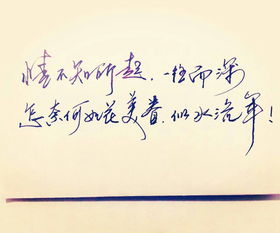 情不知所起,一往而深
怎奈何如花美眷,似水流年!